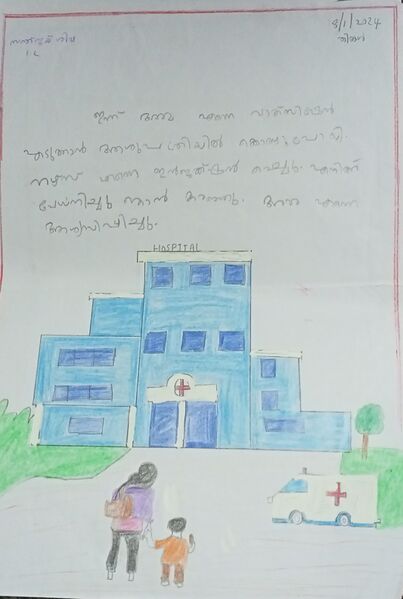 8/1/2024
തിങ്കൾ
1 C
ഇന്ന് അമ്മ എന്നെ വാക്സിനേഷൻ
എടുക്കാൻ ആശുപത്രിയിൽ കൊണ്ടുപോയി.
നഴ്സ് എന്നെ ഇൻജക്ഷൻ വെച്ചു. എനിക്ക്
പേടിച്ചു ഞാൻ കരഞ്ഞു. അമ്മ എന്നെ
ആശ്വസിപ്പിച്ചു.
HOSPITAL